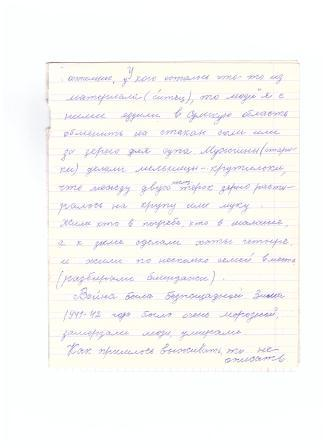 осталось, у кого осталось что-то из
материала (ситец), то люди я с
ними ездили в Сумскую область
обменить на стакан соли или
за зерно для супа Мужчины (стари-
ки) делали мельницы - крутилки,
что между двух терок зерно расти-
ралось на крупу или муку.
Жили кто в погребе, кто в маланке,
а к зиме сделали хаты четыре
и жили по несколько семей вместе
(разбирали блиндажи).
Война была безпощадной Зима
1941-42 года была очень морозной,
замерзали люди, умирали.
Как пришлось выживать, то не
описать